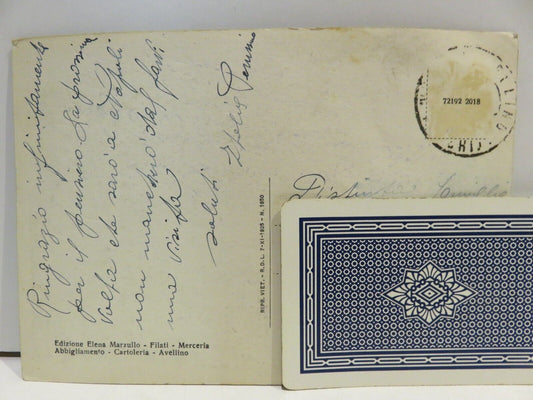 Ringrazio infinitamente
per il pensiero. La prossima
volta che sarò a Napoli
non mancherò dal farti
una visita
saluti
Edizione Elena Marzullo - Filati - Merceria
Abbigliamento - Cartoleria - Avellino
RIPR. VIET. - R.D.L. 7-XI-1925 - N. 1950
72192 2018
Distinta